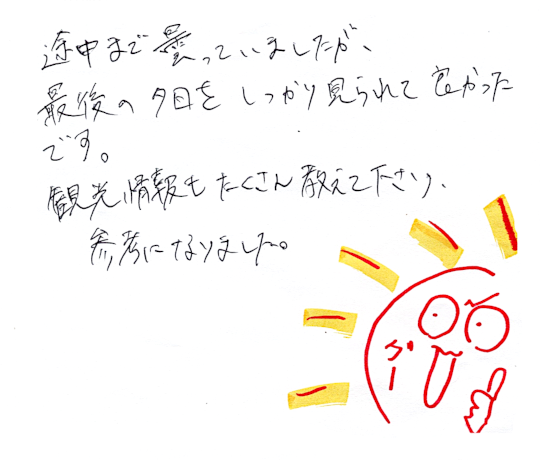 途中まで曇っていましたが、
最後の夕日をしっかり見られて良かった
です。
観光情報もたくさん教えて下さり、
参考になりました。
ぷー